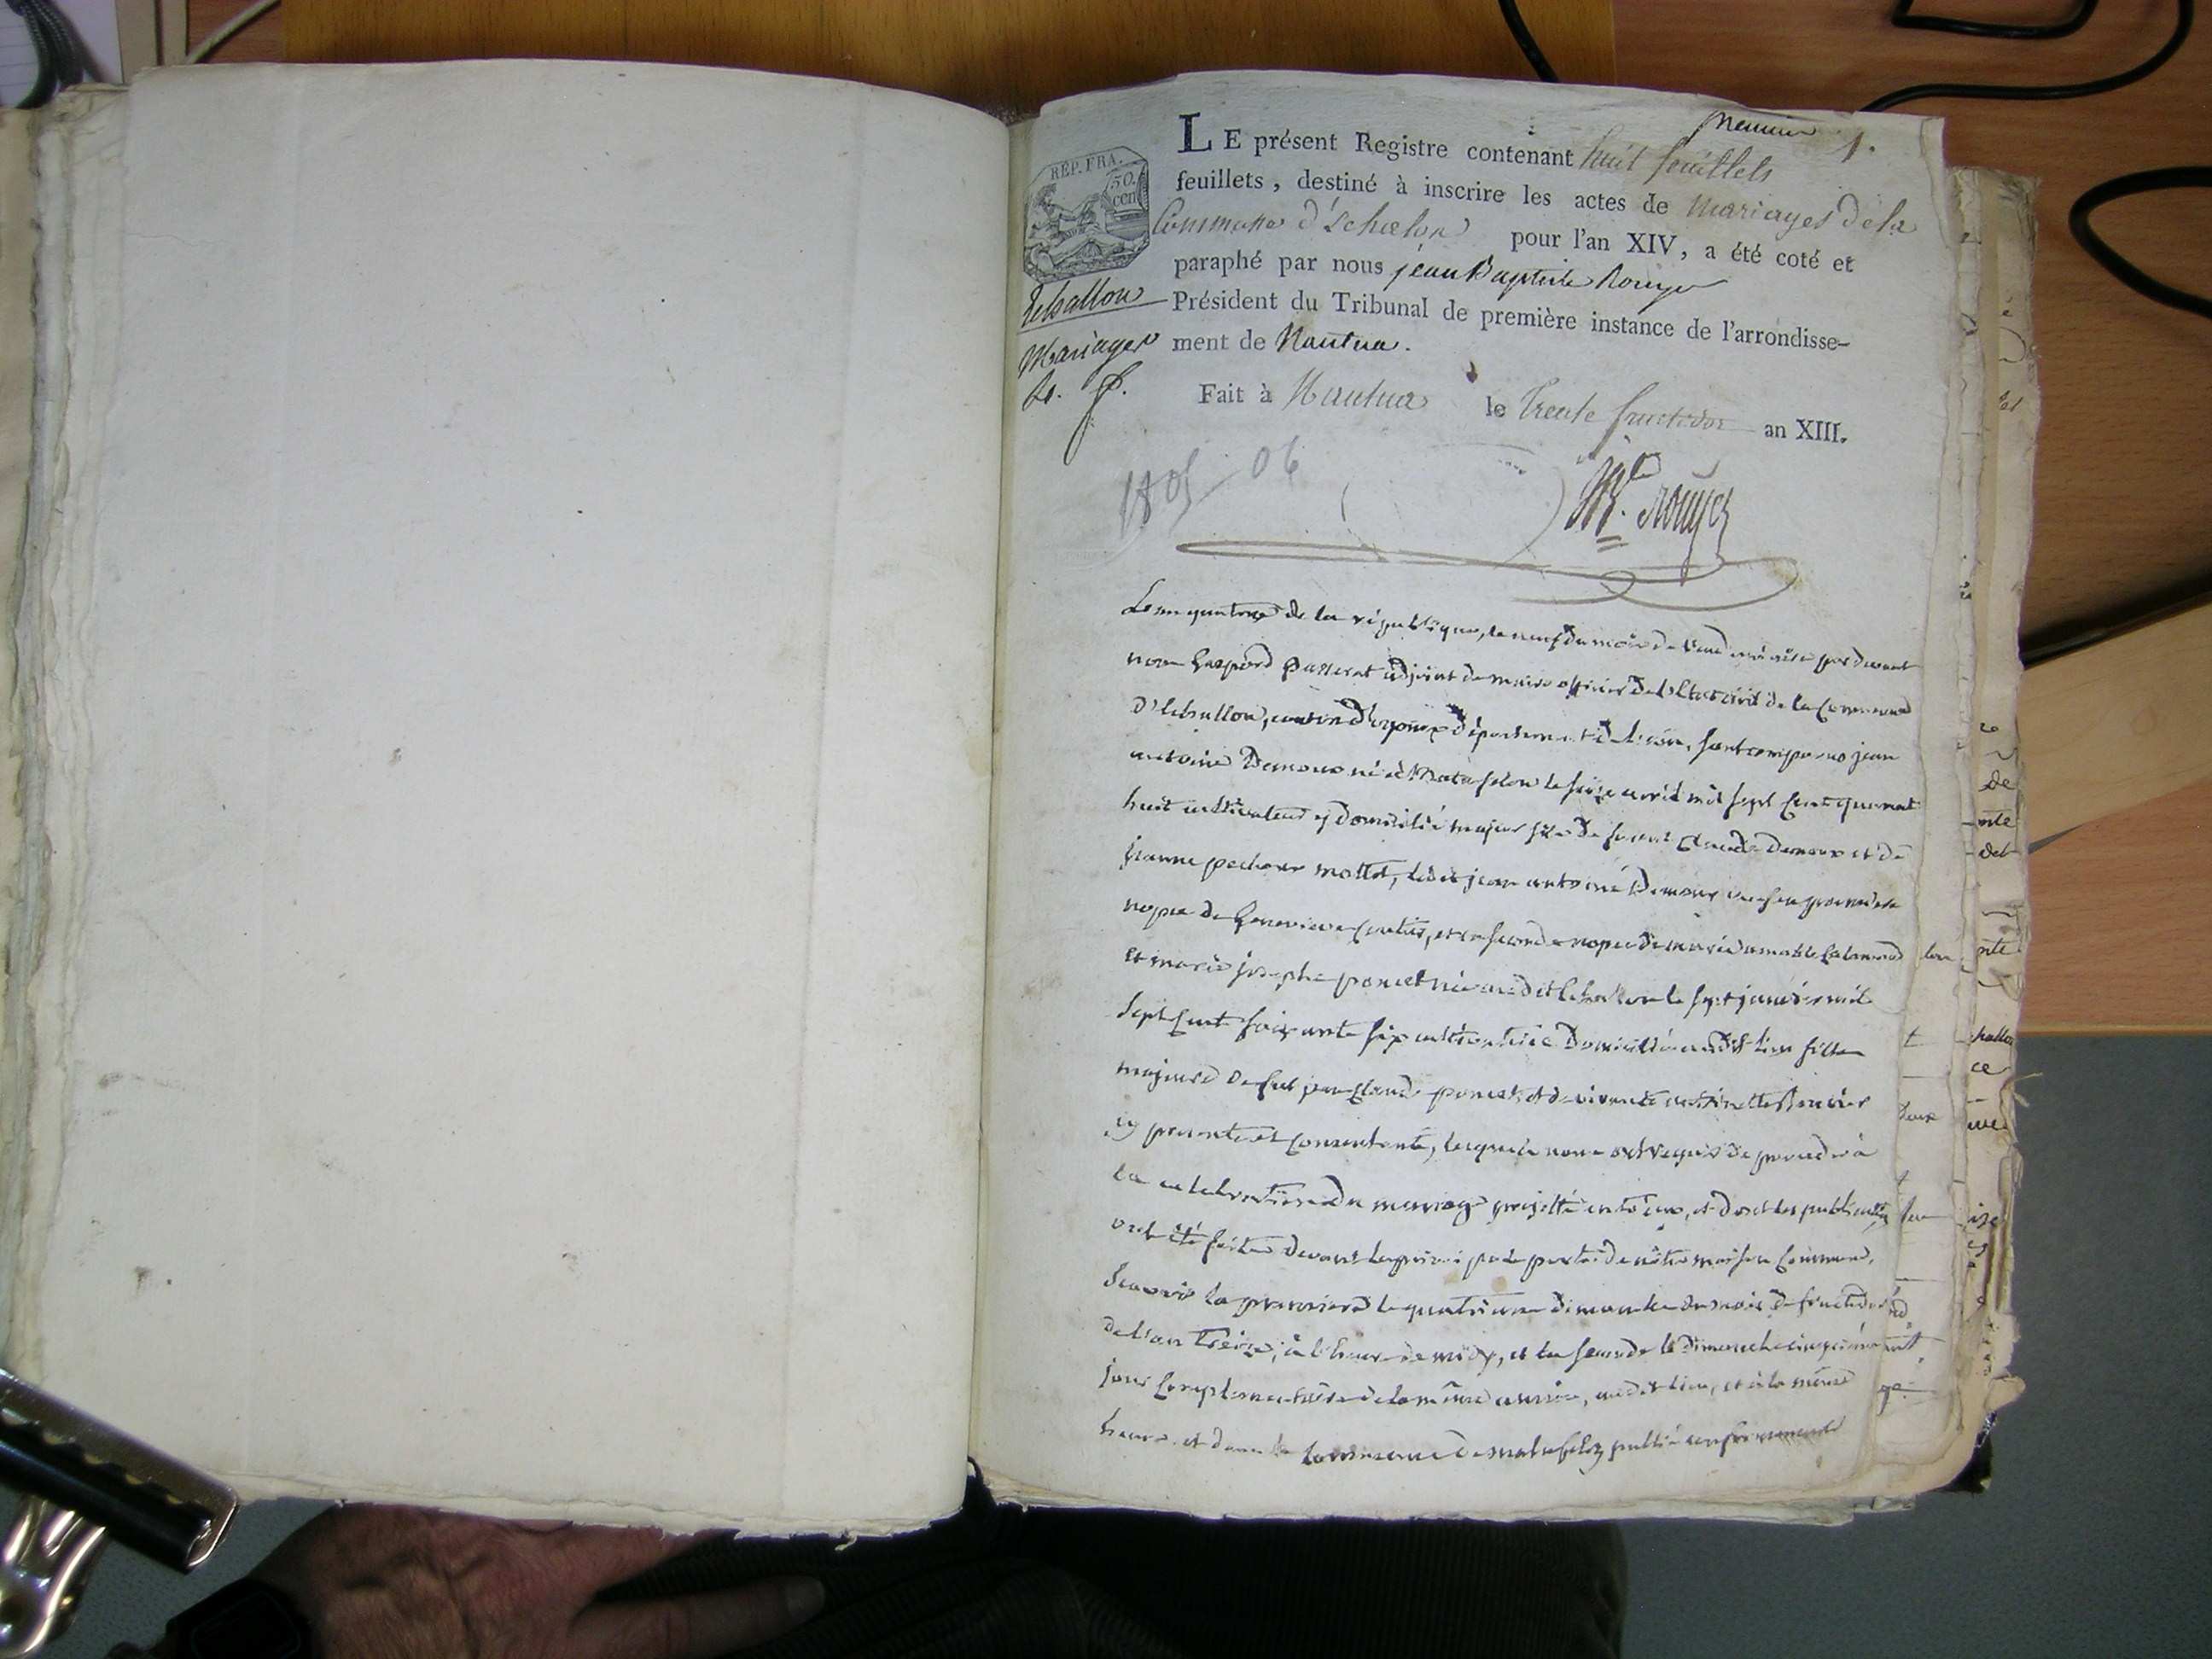 premier 1.
LE présent Registre contenant huit feuillets
feuillets, destiné à inscrire les actes de Mariages de la
Commune d'Echalon pour l'an XIV, a été coté et
paraphé par nous jean Baptiste Rouyer
Président du Tribunal de première instance de l'arrondisse-
ment de Nantua.
Fait à Nantua le trente fructidor an XIII.
RÉP. FRA.
50.
cen
Echallon
Mariages
1805-06
Rouyer
L'an quatorze de la république, le neuf du mois de Vendemiaire par devant
nous Gaspard Passerat adjoint de maire officier de l'Etat civil de la Commune
d'Echallon, canton d'oyonax département de l'ain, sont comparus jean
antoine Demoux né à Matafelon le seize avril mil sept Cent quarant
huit cultivateur y domicilié majeur fils de Claude Demoux et de
jeanne mottet, ledit jean antoine Demoux veuf en premiere
nopce de Genevieve et en seconde nopce de marie
Et marie josephe poncet née audit Echallon le sept janvier mil
Sept Cent soixante six cultivatrice Domiciliée audit lieu fille
majeure de feu Claude poncet et de vivante
cy presente et Consentante, lesquels nous ont requis de proceder à
la celebration du mariage projetté entr'eux, et dont les publications
ont été faites devant la principale porte de nôtre maison Commune,
Scavoir la premiere le quatrieme dimanche du mois de fructidor
de l'an treize, à l'heure de midy, et la seconde le dimanche cinquieme
jour Complementaire de la même année, audit lieu, et à la même
heure et dans la Commune de matafelon publié conformement